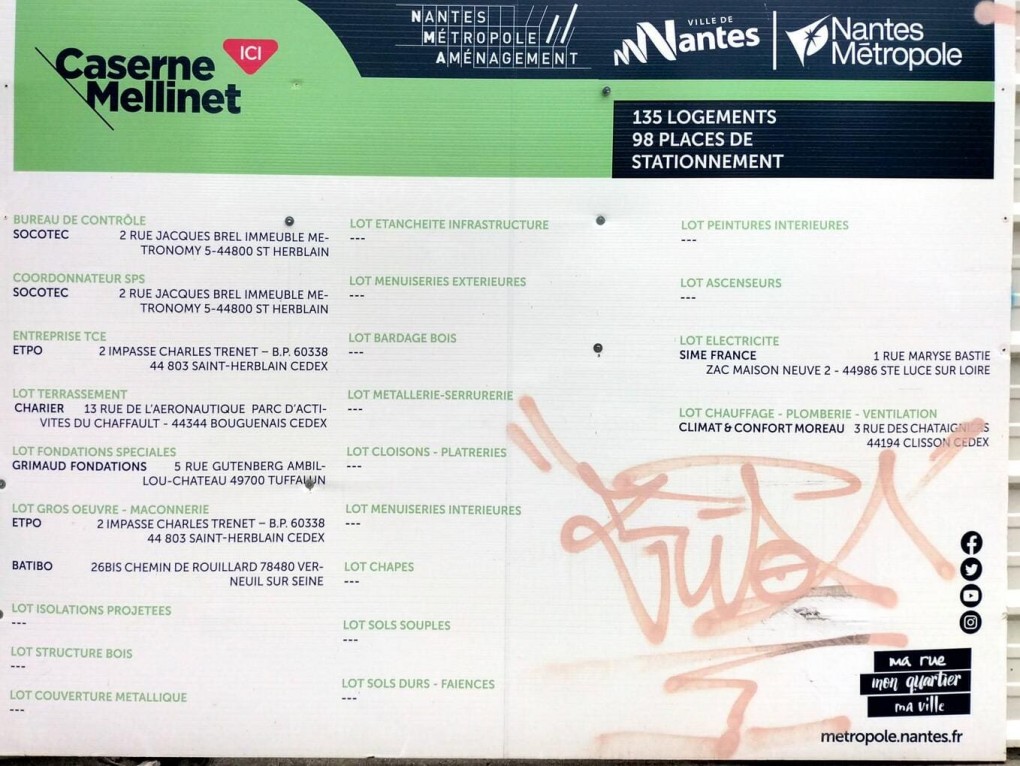 Caserne
Mellinet
ICI
NANTES
MÉTROPOLE
AMÉNAGEMENT
VILLE DE
Nantes
Nantes
Métropole
135 LOGEMENTS
98 PLACES DE
STATIONNEMENT
BUREAU DE CONTRÔLE
SOCOTEC 2 RUE JACQUES BREL IMMEUBLE ME-
TRONOMY 5-44800 ST HERBLAIN
COORDONNATEUR SPS
SOCOTEC 2 RUE JACQUES BREL IMMEUBLE ME-
TRONOMY 5-44800 ST HERBLAIN
ENTREPRISE TCE
ETPO 2 IMPASSE CHARLES TRENET – B.P. 60338
44 803 SAINT-HERBLAIN CEDEX
LOT TERRASSEMENT
CHARIER 13 RUE DE L'AERONAUTIQUE PARC D'ACTI-
VITES DU CHAFFAULT - 44344 BOUGUENAIS CEDEX
LOT FONDATIONS SPECIALES
GRIMAUD FONDATIONS 5 RUE GUTENBERG AMBIL-
LOU-CHATEAU 49700 TUFFALUN
LOT GROS OEUVRE - MACONNERIE
ETPO 2 IMPASSE CHARLES TRENET – B.P. 60338
44 803 SAINT-HERBLAIN CEDEX
BATIBO 26BIS CHEMIN DE ROUILLARD 78480 VER-
NEUIL SUR SEINE
LOT ISOLATIONS PROJETEES
---
LOT STRUCTURE BOIS
---
LOT COUVERTURE METALLIQUE
---
LOT ETANCHEITE INFRASTRUCTURE
---
LOT MENUISERIES EXTERIEURES
---
LOT BARDAGE BOIS
---
LOT METALLERIE-SERRURERIE
---
LOT CLOISONS - PLATRERIES
---
LOT MENUISERIES INTERIEURES
---
LOT CHAPES
---
LOT SOLS SOUPLES
---
LOT SOLS DURS - FAIENCES
---
LOT PEINTURES INTERIEURES
---
LOT ASCENSEURS
---
LOT ELECTRICITE
SIME FRANCE 1 RUE MARYSE BASTIE
ZAC MAISON NEUVE 2 - 44986 STE LUCE SUR LOIRE
LOT CHAUFFAGE - PLOMBERIE - VENTILATION
CLIMAT & CONFORT MOREAU 3 RUE DES CHATAIGNIERS
44194 CLISSON CEDEX
ma rue
mon quartier
ma ville
metropole.nantes.fr